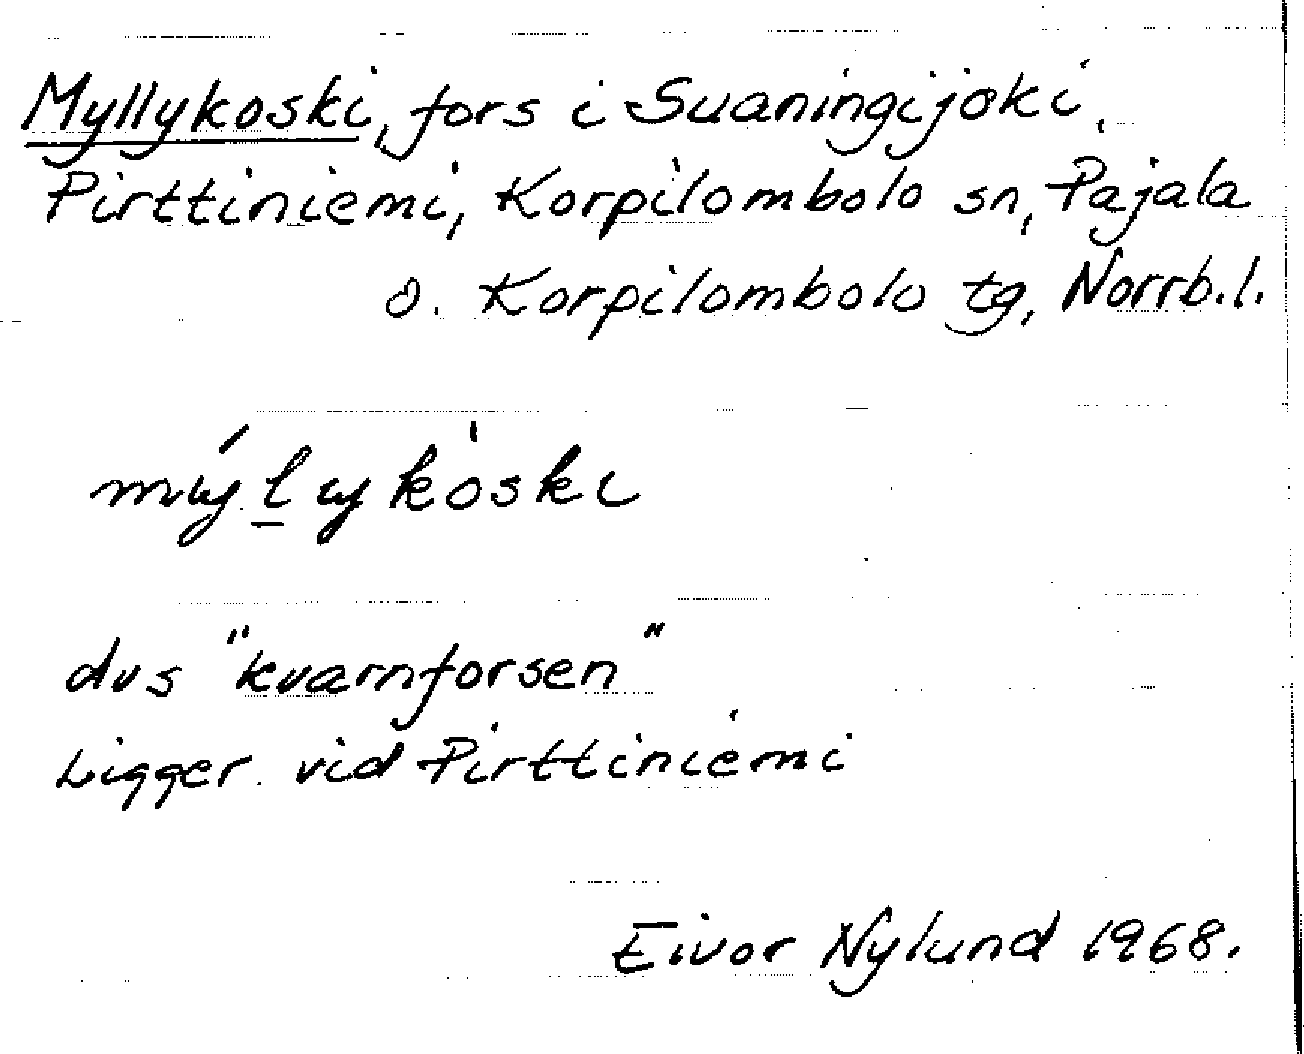 Myllykoski, fors i Suaningijoki,
Pirttiniemi, Korpilombolo sn, Pajala
o. Korpilombolo tg, Norrb.l.
mýl̠ykòski
dvs "kvarnforsen"
Ligger vid Pirttiniemi
Eivor Nylund 1968.